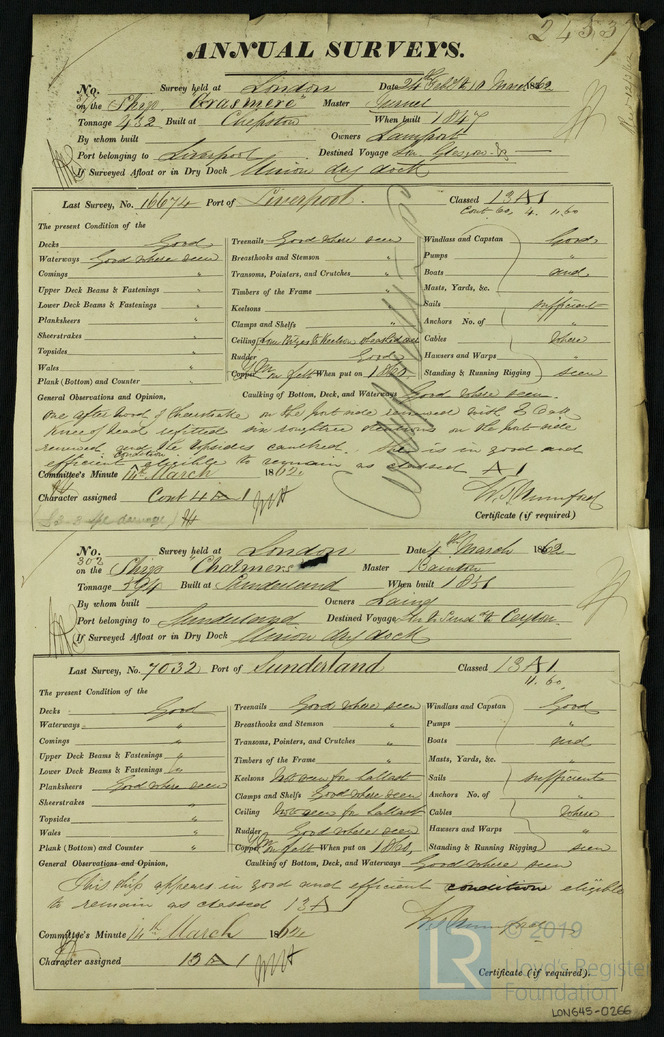 24537
ANNUAL SURVEYS.
No. Survey held at London Date 24th Feby to 10 March 1862
on the Ship "Grasmere" Master
Tonnage 432 Built at When built 1847
By whom built Owners Lamport
Port belonging to Liverpool Destined Voyage Glasgow &c
If Surveyed Afloat or in Dry Dock Union dry dock
Last Survey, No. 16674 Port of Liverpool. Classed 13 A 1
Cont 60, 4. 11.60
The present Condition of the
Decks Good
Waterways Good where seen
Comings "
Upper Deck Beams & Fastenings "
Lower Deck Beams & Fastenings "
Planksheers "
Sheerstrakes "
Topsides "
Wales "
Plank (Bottom) and Counter "
Treenails Good where seen
Breasthooks and Stemson "
Transoms, Pointers, and Crutches "
Timbers of the Frame "
Keelsons "
Clamps and Shelfs "
Ceiling
Rudder Good
Copper YM on felt When put on 1860
Windlass and Capstan Good
Pumps "
Boats and
Masts, Yards, &c. "
Sails sufficient
Anchors No. of "
Cables where
Hawsers and Warps "
Standing & Running Rigging seen
General Observations and Opinion, Caulking of Bottom, Deck, and Waterways Good where seen.
One after hood of sheerstrake on the port side renewed with E Oak
Knee of head refitted six roughtree stantions on the port side
renewed and the topsides caulked. She is in good and
efficient condition eligible to remain as classed A 1
Committee's Minute 14th March 1862
Character assigned Cont 4 A 1
W. J. Mumford
Certificate (if required)
No. 302 Survey held at London Date 4th March 1862
on the Ship "Chalmers" Master
Tonnage Built at Sunderland When built 1851
By whom built Owners Laing
Port belonging to Sunderland Destined Voyage Ceylon
If Surveyed Afloat or in Dry Dock Union dry dock
Last Survey, No. 7032 Port of Sunderland Classed 13 A 1
11. 60
The present Condition of the
Decks Good
Waterways "
Comings "
Upper Deck Beams & Fastenings "
Lower Deck Beams & Fastenings "
Planksheers Good where seen
Sheerstrakes "
Topsides "
Wales "
Plank (Bottom) and Counter "
Treenails Good where seen
Breasthooks and Stemson "
Transoms, Pointers, and Crutches "
Timbers of the Frame "
Keelsons Not seen for ballast
Clamps and Shelfs Good where seen
Ceiling Not seen for ballast
Rudder Good where seen
Copper YM on felt When put on 1860
Windlass and Capstan Good
Pumps "
Boats and
Masts, Yards, &c. "
Sails sufficient
Anchors No. of "
Cables where
Hawsers and Warps "
Standing & Running Rigging seen
General Observations and Opinion, Caulking of Bottom, Deck, and Waterways Good where seen
This ship appears in good and efficient condition eligible
to remain as classed 13 A 1
W. J. Mumford
Committee's Minute 14th March 1862
Character assigned 13 A 1
Certificate (if required).
LR
© 2019
Lloyd's Register
Foundation
LON645-0266